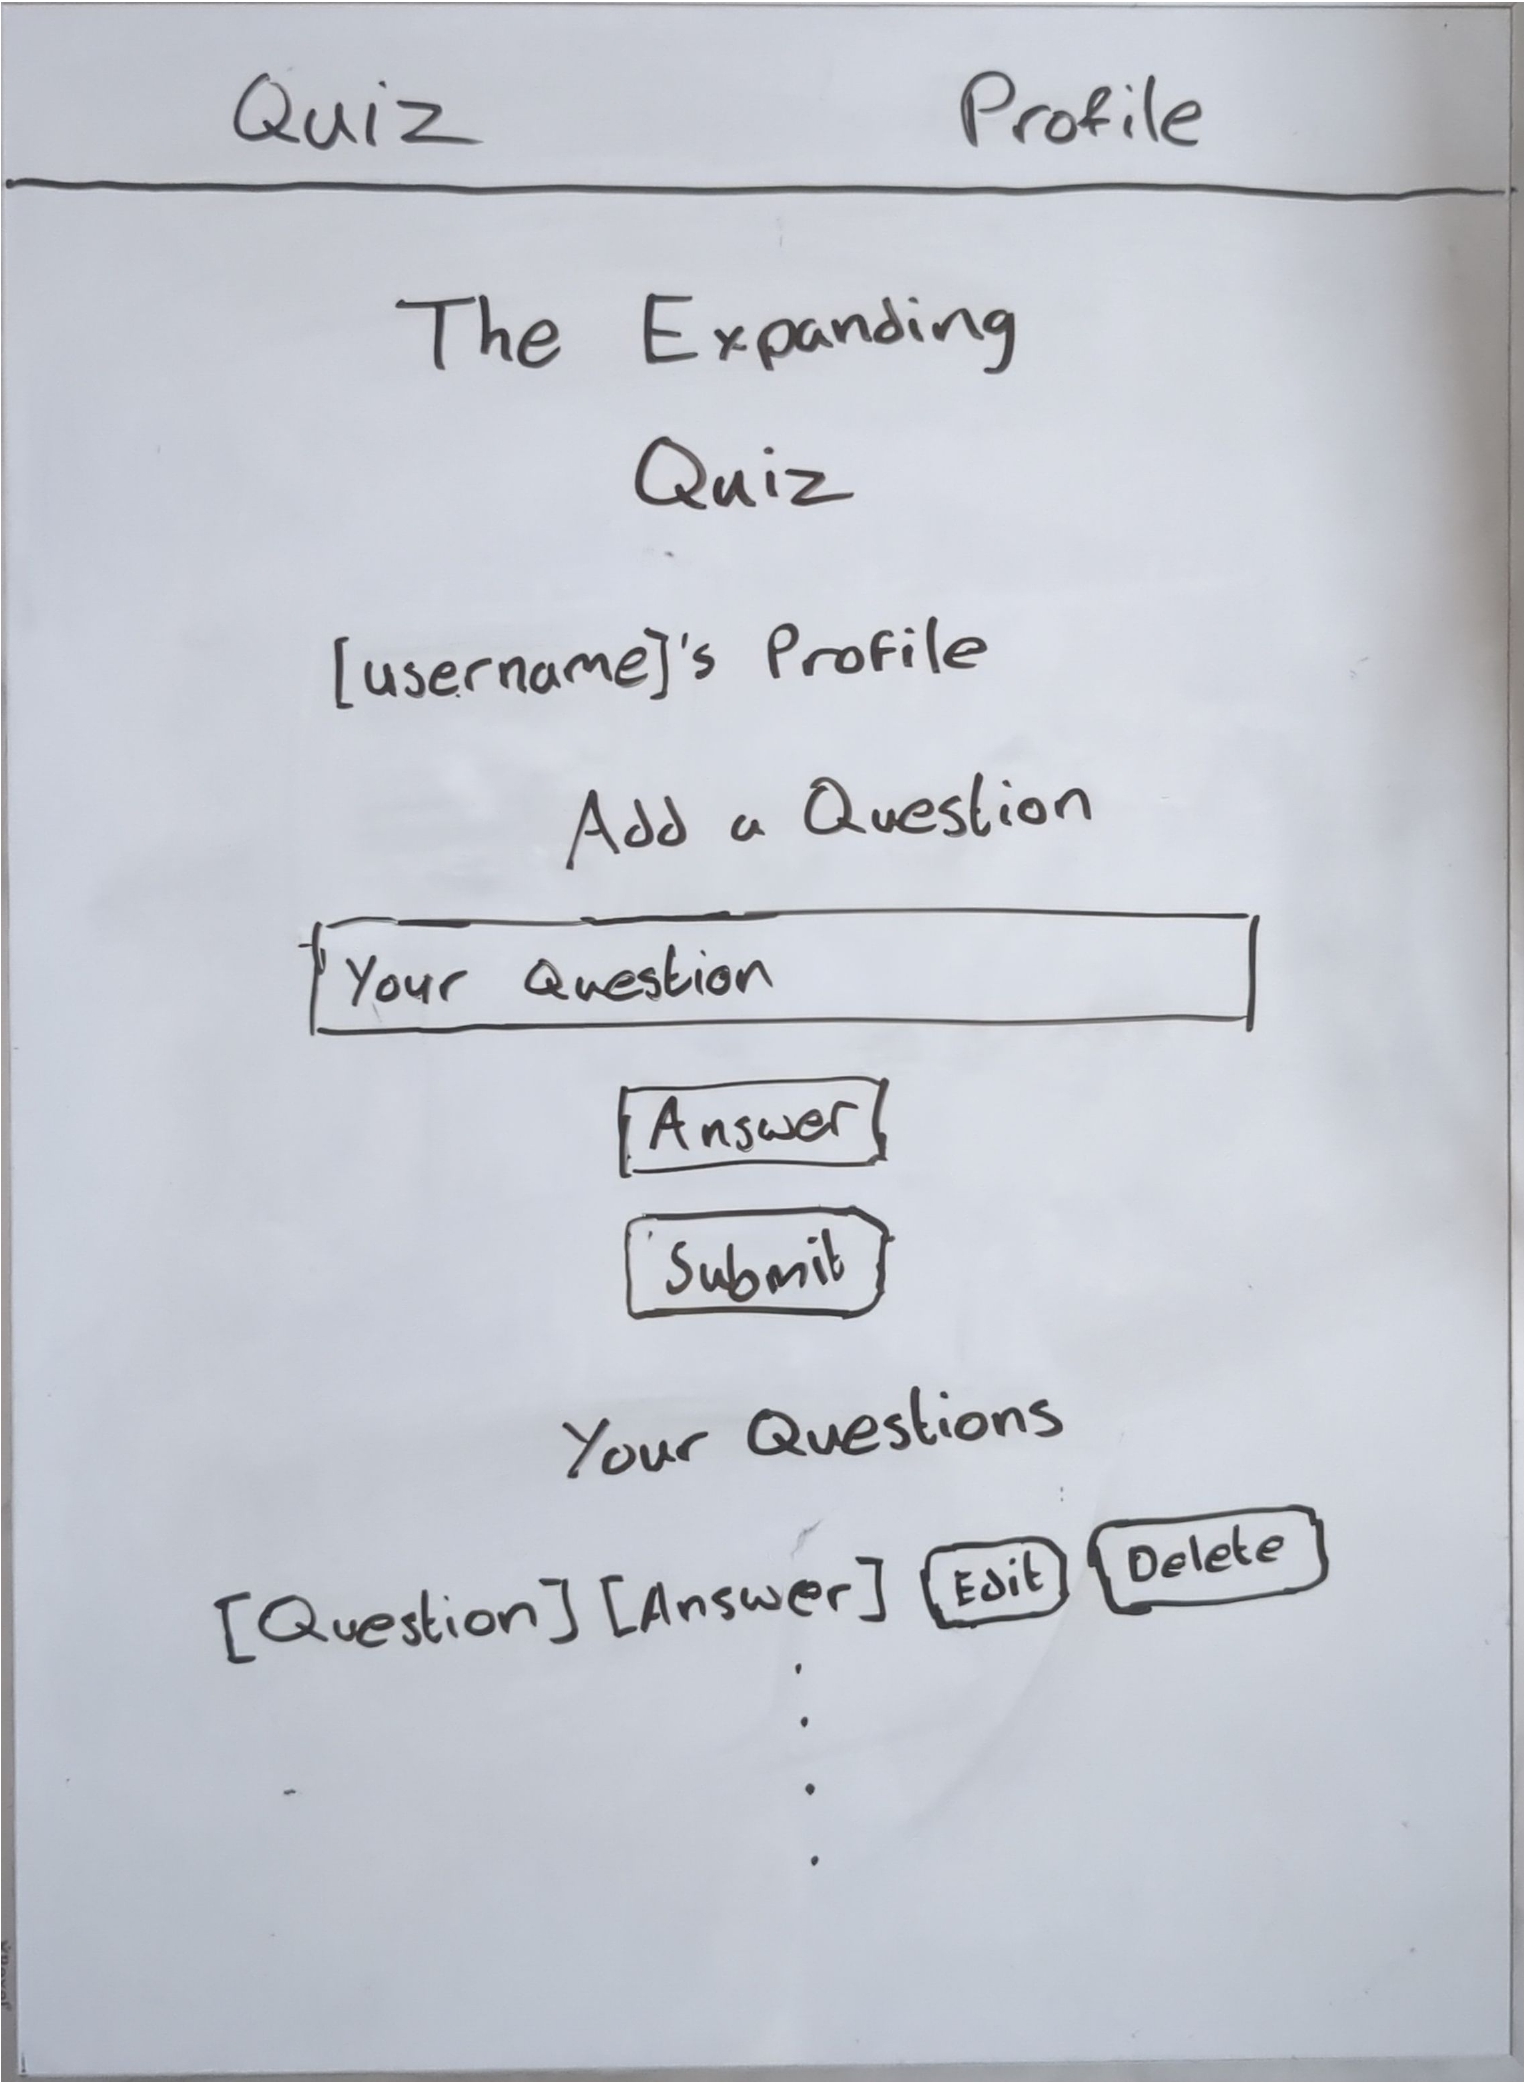 Quiz Profile
The Expanding
Quiz
[username]'s Profile
Add a Question
Your Question
Answer
Submit
Your Questions
[Question] [Answer] Edit Delete